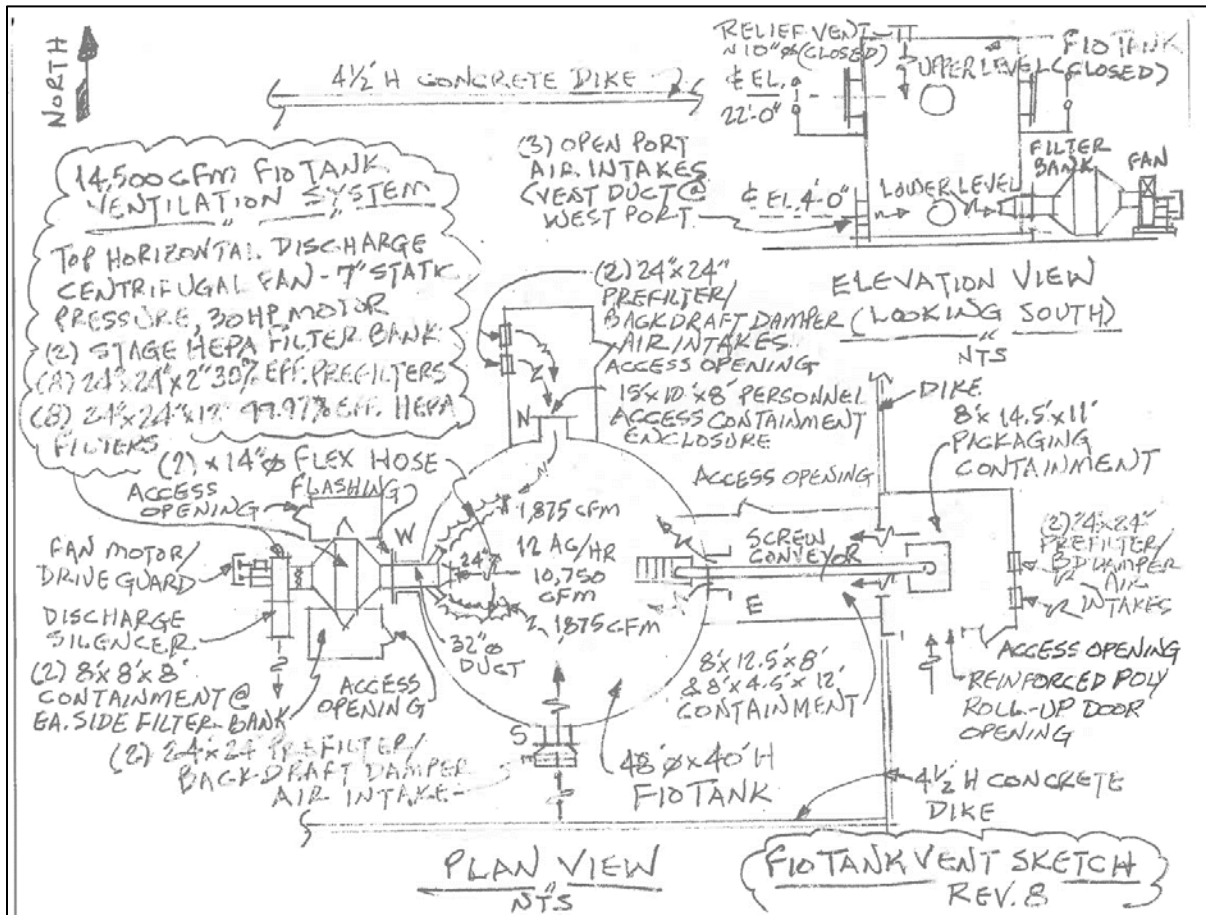 NORTH
4½' H CONCRETE DIKE
RELIEF VENT
~10"ø (CLOSED)
F10 TANK
UPPER LEVEL (CLOSED)
℄ EL.
22'-0"
(3) OPEN PORT
AIR INTAKES
(VENT DUCT @
WEST PORT
℄ EL. 4'-0"
LOWER LEVEL
FILTER
BANK
FAN
ELEVATION VIEW
(LOOKING SOUTH)
NTS
14,500 CFM F10 TANK
VENTILATION SYSTEM
TOP HORIZONTAL DISCHARGE
CENTRIFUGAL FAN - 7" STATIC
PRESSURE, 30 HP MOTOR
(2) STAGE HEPA FILTER BANK
24"x24"x2" 30% EFF. PREFILTERS
(8) 24"x24"x12" 99.97% EFF. HEPA
FILTERS
(2) 24"x24"
PREFILTER/
BACKDRAFT DAMPER
AIR INTAKES
ACCESS OPENING
15'x10'x8' PERSONNEL
ACCESS CONTAINMENT
ENCLOSURE
N
DIKE
8'x14.5'x11'
PACKAGING
CONTAINMENT
(2) x 14"ø FLEX HOSE
FLASHING
ACCESS
OPENING
W
FAN MOTOR/
DRIVE GUARD
DISCHARGE
SILENCER
(2) 8'x8'x8'
CONTAINMENT @
EA. SIDE FILTER BANK
ACCESS
OPENING
32"ø
DUCT
24"ø
1,875 CFM
12 AC/HR
10,750
CFM
1,875 CFM
ACCESS OPENING
SCREW
CONVEYOR
E
(2) 24"x24"
PREFILTER/
BD DAMPER
AIR
INTAKES
ACCESS OPENING
REINFORCED POLY
ROLL-UP DOOR
OPENING
8'x12.5'x8'
& 8'x4.5'x12'
CONTAINMENT
(2) 24"x24" PREFILTER/
BACKDRAFT DAMPER
AIR INTAKE
S
48'ø x 40'H
F10 TANK
4½' H CONCRETE
DIKE
PLAN VIEW
NTS
F10 TANK VENT SKETCH
REV. 8